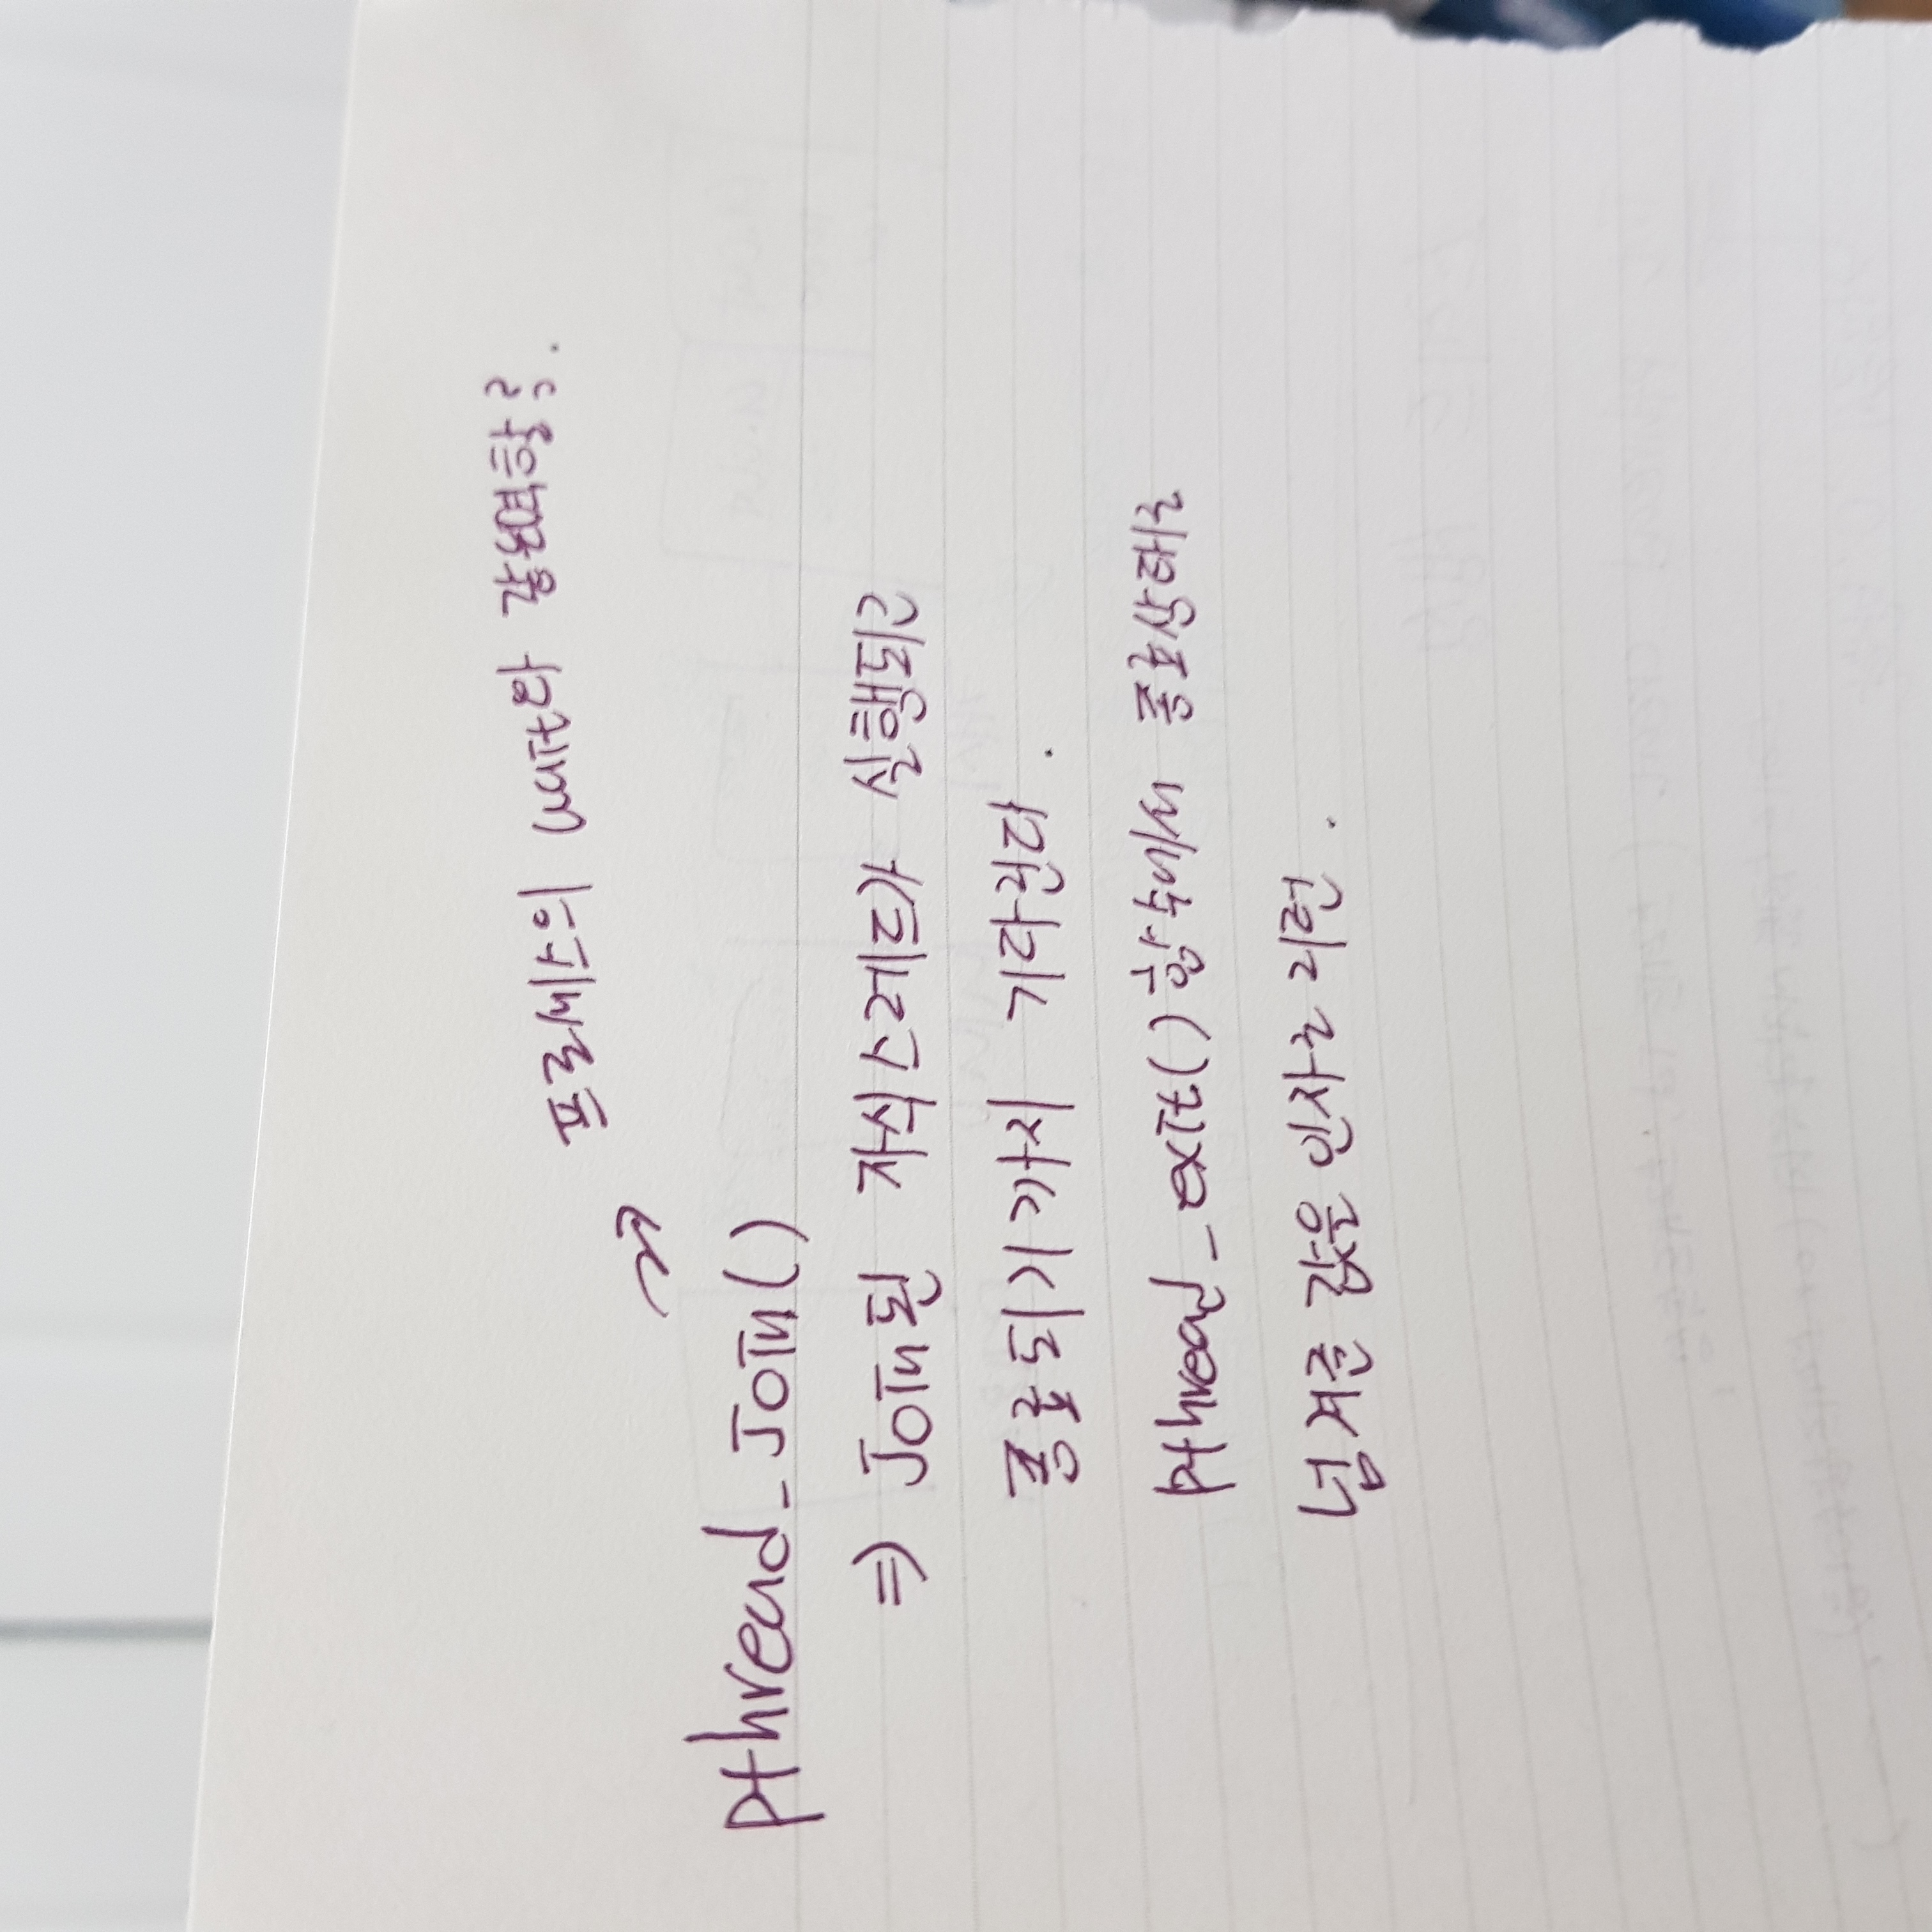 프로세스의 wait와 같은역할?.
pthread_join()
⇒ join된 자식스레드가 실행되고
종료되기까지 기다린다.
pthread_exit()함수에서 종료상태로
넘겨준 값을 인자로 리턴.